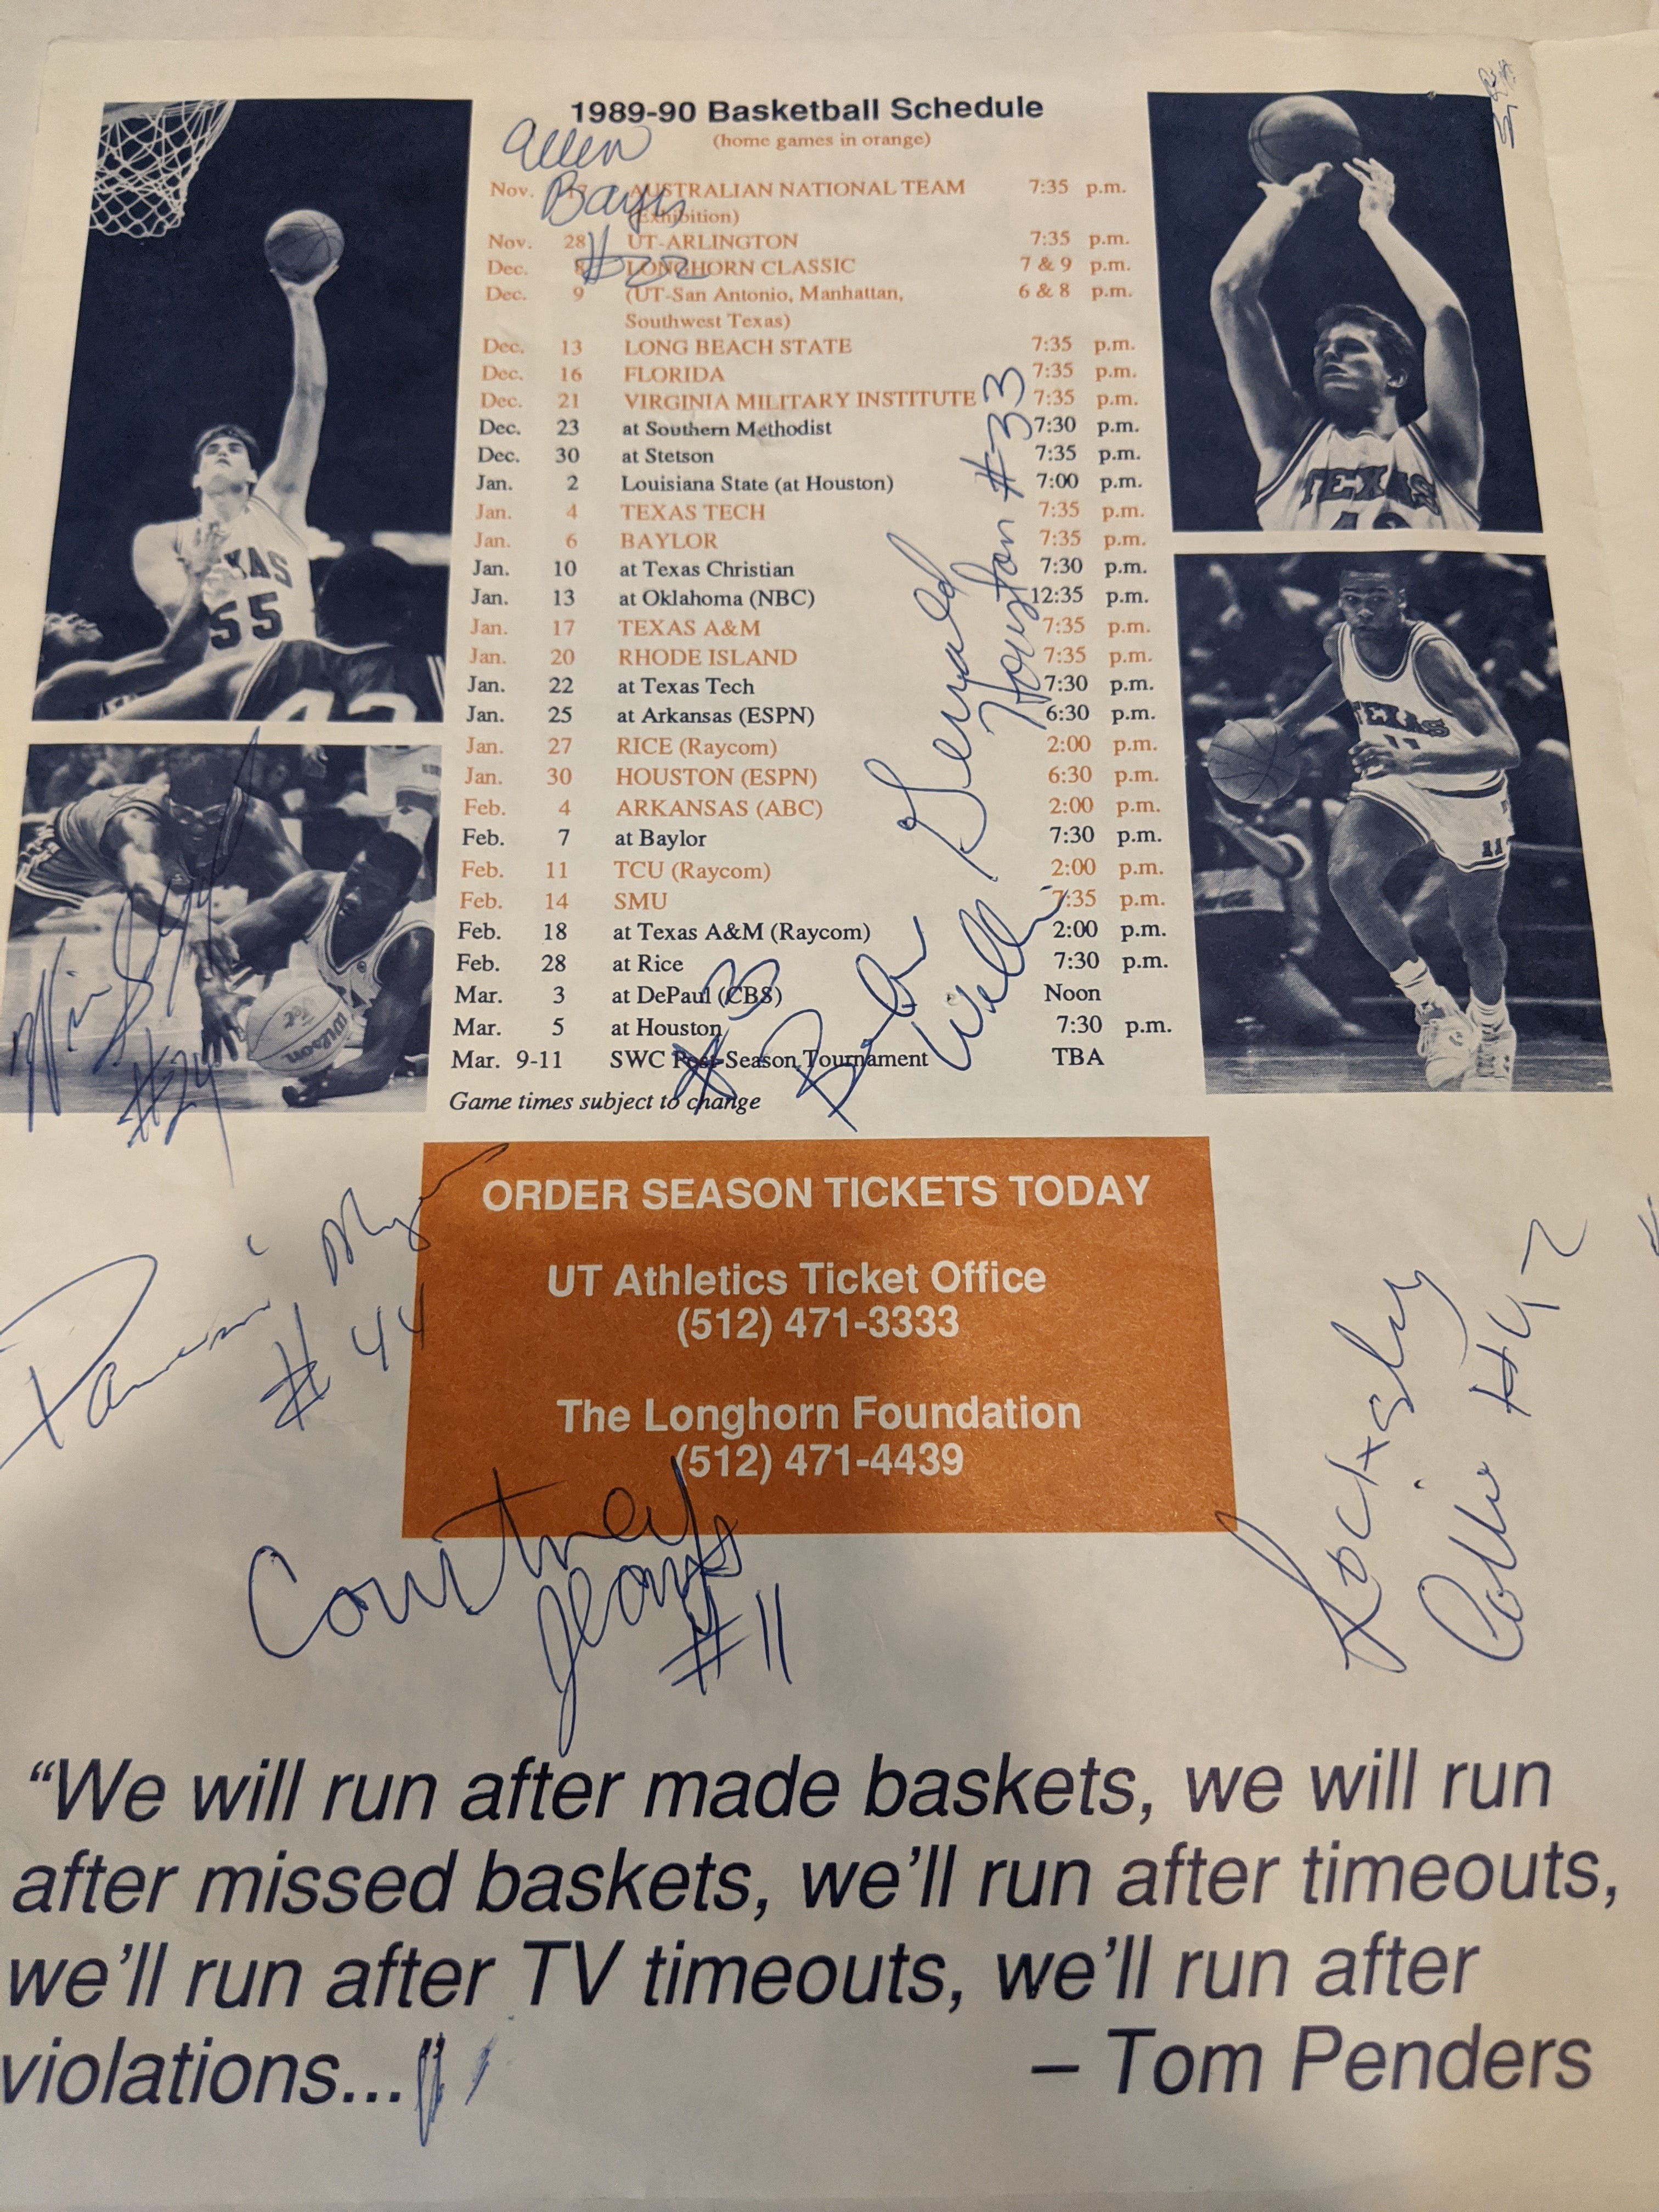 1989-90 Basketball Schedule
(home games in orange)
Allen
Nov. 17 AUSTRALIAN NATIONAL TEAM 7:35 p.m.
(Exhibition)
#22
Nov. 28 UT-ARLINGTON 7:35 p.m.
Dec. 8 LONGHORN CLASSIC 7 & 9 p.m.
Dec. 9 (UT-San Antonio, Manhattan, 6 & 8 p.m.
Southwest Texas)
Dec. 13 LONG BEACH STATE 7:35 p.m.
Dec. 16 FLORIDA 7:35 p.m.
Dec. 21 VIRGINIA MILITARY INSTITUTE 7:35 p.m.
Dec. 23 at Southern Methodist 7:30 p.m.
Dec. 30 at Stetson 7:35 p.m.
Jan. 2 Louisiana State (at Houston) 7:00 p.m.
Jan. 4 TEXAS TECH 7:35 p.m.
Jan. 6 BAYLOR 7:35 p.m.
Jan. 10 at Texas Christian 7:30 p.m.
Jan. 13 at Oklahoma (NBC) 12:35 p.m.
Jan. 17 TEXAS A&M 7:35 p.m.
Jan. 20 RHODE ISLAND 7:35 p.m.
Jan. 22 at Texas Tech 7:30 p.m.
Jan. 25 at Arkansas (ESPN) 6:30 p.m.
Jan. 27 RICE (Raycom) 2:00 p.m.
Jan. 30 HOUSTON (ESPN) 6:30 p.m.
Feb. 4 ARKANSAS (ABC) 2:00 p.m.
Feb. 7 at Baylor 7:30 p.m.
Feb. 11 TCU (Raycom) 2:00 p.m.
Feb. 14 SMU 7:35 p.m.
Feb. 18 at Texas A&M (Raycom) 2:00 p.m.
Feb. 28 at Rice 7:30 p.m.
Mar. 3 at DePaul (CBS) Noon
Mar. 5 at Houston 7:30 p.m.
Mar. 9-11 SWC Post-Season Tournament TBA
Game times subject to change
Gerald
Houston #33
TEXAS
55
42
TEXAS
11
TEXAS
11
Wilson
#24
#3
#44
ORDER SEASON TICKETS TODAY
UT Athletics Ticket Office
(512) 471-3333
The Longhorn Foundation
(512) 471-4439
Courtney
Jeans
#11
Locksley
Collie #42
“We will run after made baskets, we will run
after missed baskets, we’ll run after timeouts,
we’ll run after TV timeouts, we’ll run after
violations...”
– Tom Penders